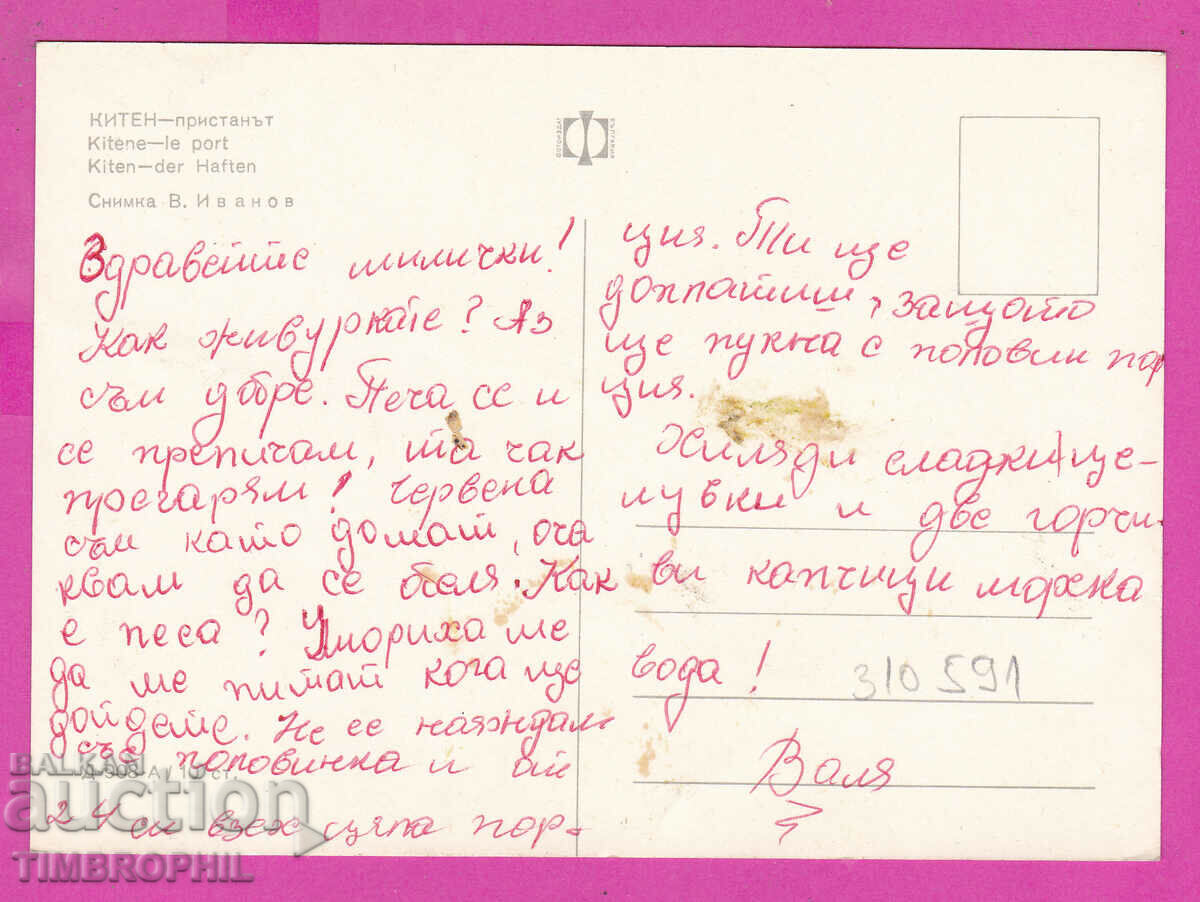 КИТЕН—пристанът
Kitène—le port
Kiten—der Haften
Снимка В. Иванов
ФОТОИЗДАТ
БЪЛГАРИЯ
Здравейте милички!
Как живуркате? Аз
съм добре. Печа се и
се препичам, та чак
прегарям! Червена
съм като домат, оча
квам да се беля. Как
е песа? Умориха ме
да ме питат кога ще
дойдете. Не се наяждам
със половинка и от
24 си взех цяла пор-
ция. Ти ще
доплатиш, защото
ще пукна с половин пор
ция.
Хиляди сладки це-
лувки и две горчи-
ви капчици морска
вода!
Валя
310591
Д-908-А / 10 ст.
BALKAN
auction
TIMBROPHIL